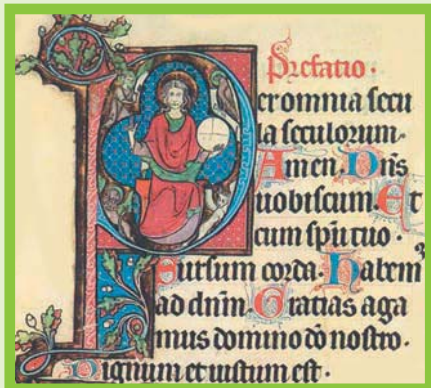 Prefatio.
Per omnia secu
la seculorum.
Amen. Dns
uobiscum. Et
cum spiritu tuo.
Sursum corda. Habem
ad dnm. Gratias aga
mus domino do nostro.
Dignum et iustum est.